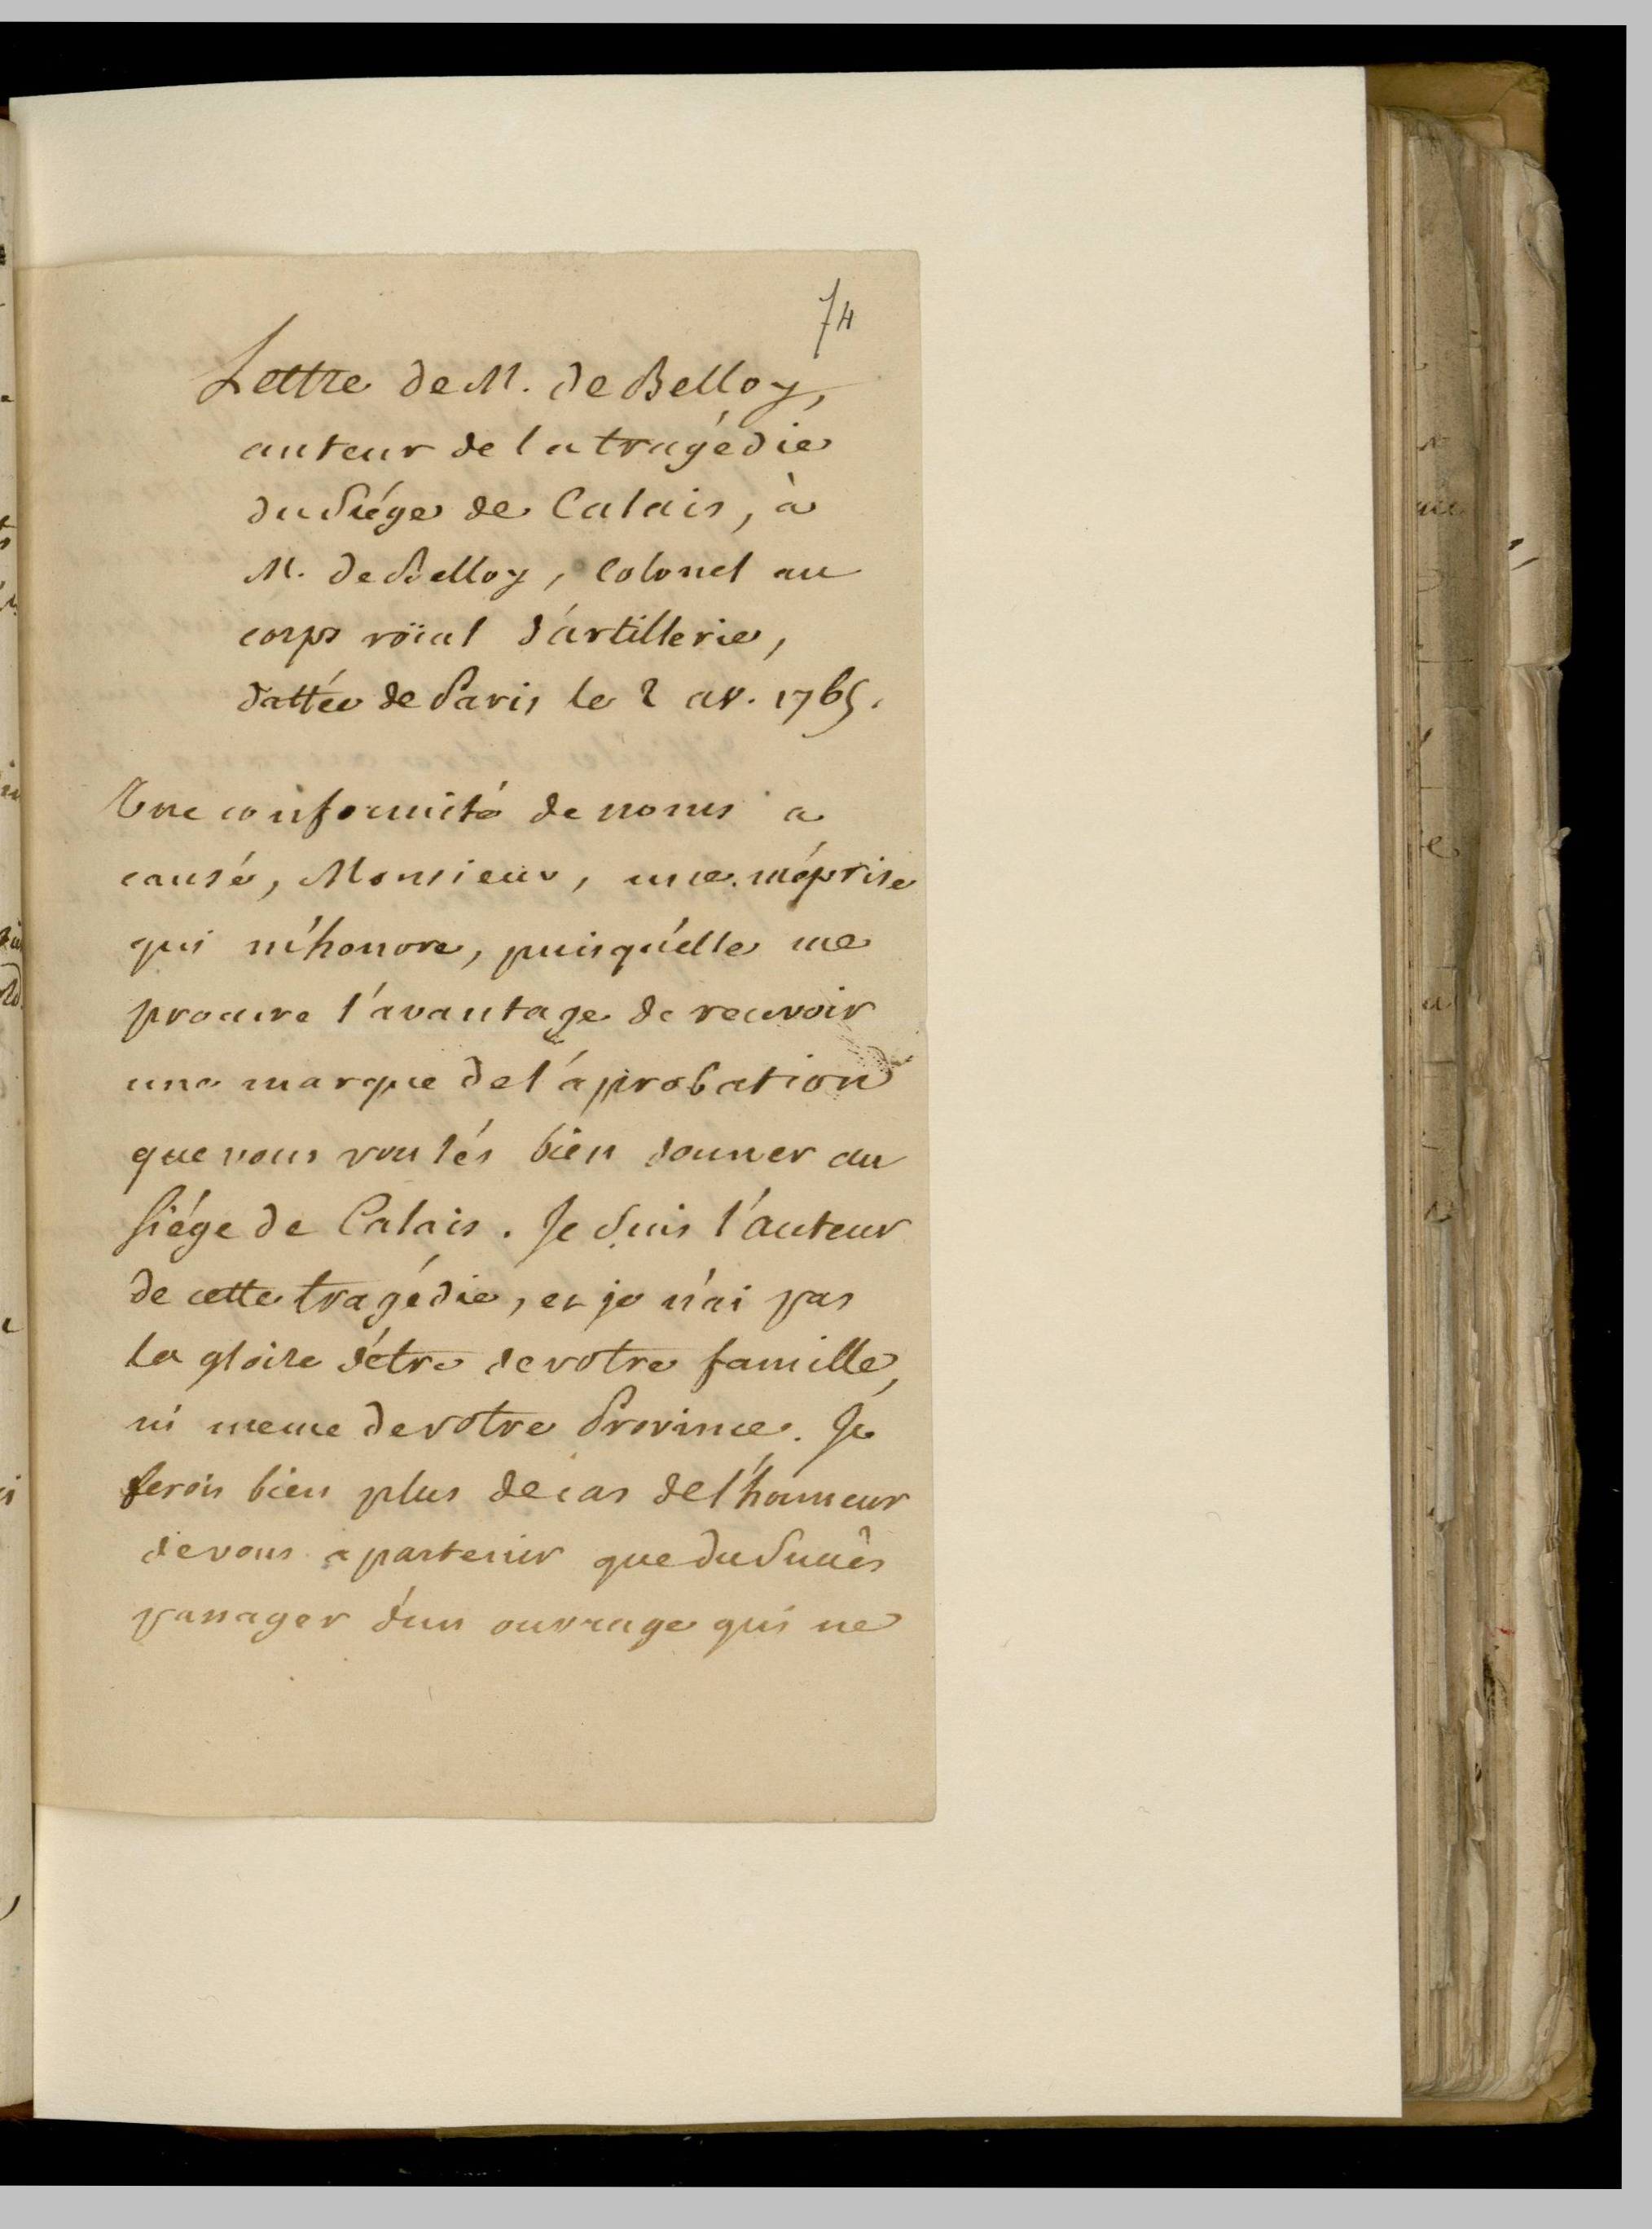 74
Lettre de M. de Belloy,
auteur de la tragédie
du Siége de Calais, à
M. de Belloy, Colonel au
corps roïal d'artillerie,
dattée de Paris le 2 av. 1765.
Une conformité de noms a
causé, Monsieur, une méprise
qui m'honore, puisqu'elle me
procure l'avantage de recevoir
une marque de l'aprobation
que vous voulés bien donner au
siége de Calais. Je suis l'auteur
de cette tragédie, et je n'ai pas
la gloire d'être de votre famille,
ni meme de votre Province. Je
ferois bien plus de cas de l'honneur
de vous apartenir que du Succès
passager d'un ouvrage qui ne